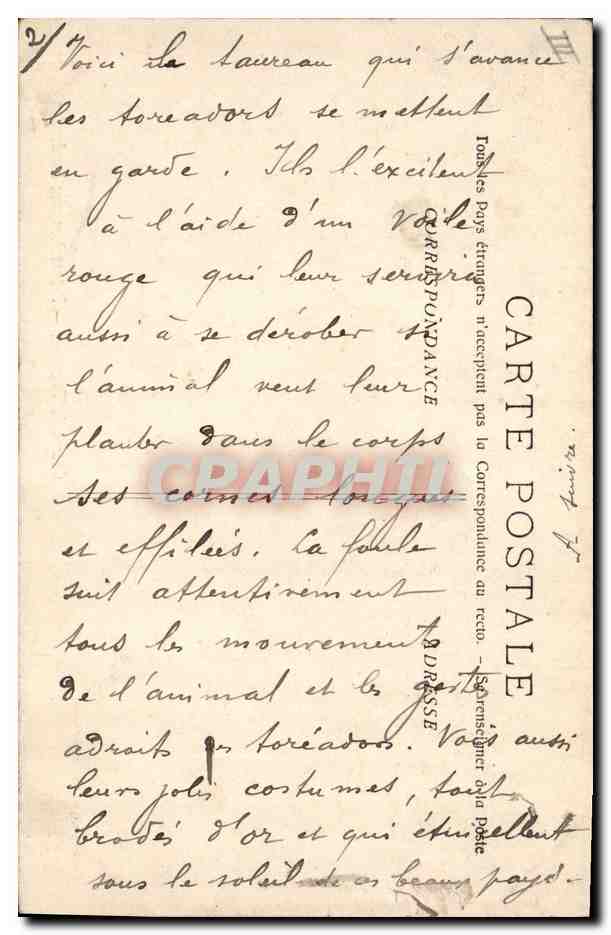 2/
III
Voici le taureau qui s'avance
les toreadors se mettent
en garde. Ils l'excitent
à l'aide d'un voile
rouge qui leur servira
aussi à se dérober si
l'animal veut leur
planter dans le corps
ses cornes longues
et effilées. La foule
suit attentivement
tous les mouvements
de l'animal et les gestes
adroits des toréadors. Vois aussi
leurs jolis costumes, tout
brodés d'or et qui étincellent
sous le soleil de ces beaux pays.
A suivre.
CARTE POSTALE
Tous les Pays étrangers n'acceptent pas la Correspondance au recto. - (Se renseigner à la Poste
CORRESPONDANCE
ADRESSE
CPAPHIL